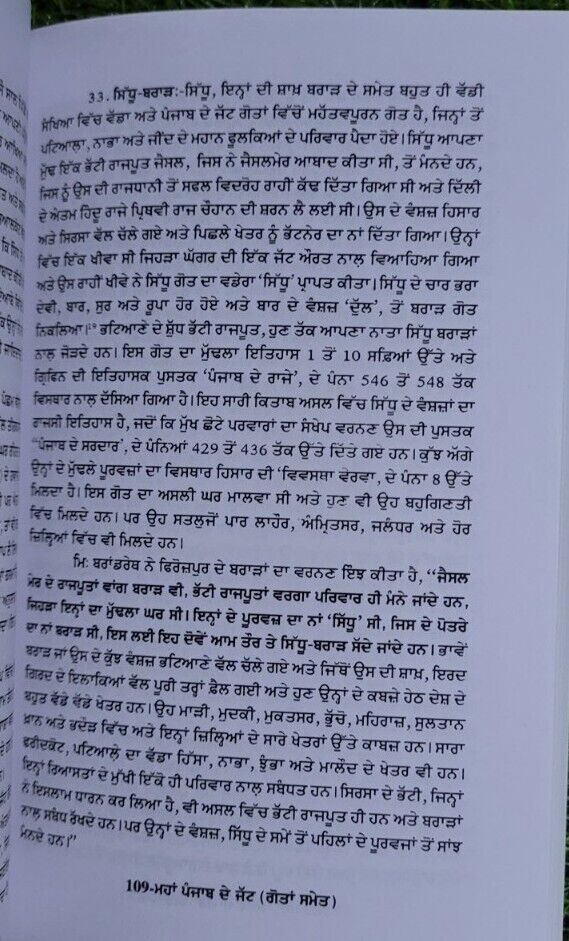 33. ਸਿੱਧੂ-ਬਰਾੜ:-ਸਿੱਧੂ, ਇਨ੍ਹਾਂ ਦੀ ਸ਼ਾਖ਼ ਬਰਾੜ ਦੇ ਸਮੇਤ ਬਹੁਤ ਹੀ ਵੱਡੀ
ਸੰਖਿਆ ਵਿੱਚ ਵੱਡਾ ਅਤੇ ਪੰਜਾਬ ਦੇ ਜੱਟ ਗੋਤਾਂ ਵਿੱਚੋਂ ਮਹੱਤਵਪੂਰਨ ਗੋਤ ਹੈ, ਜਿਨ੍ਹਾਂ ਤੋਂ
ਪਟਿਆਲਾ, ਨਾਭਾ ਅਤੇ ਜੀਂਦ ਦੇ ਮਹਾਨ ਫੂਲਕਿਆਂ ਦੇ ਪਰਿਵਾਰ ਪੈਦਾ ਹੋਏ। ਸਿੱਧੂ ਆਪਣਾ
ਮੁੱਢ ਇੱਕ ਭੱਟੀ ਰਾਜਪੂਤ ਜੈਸਲ, ਜਿਸ ਨੇ ਜੈਸਲਮੇਰ ਆਬਾਦ ਕੀਤਾ ਸੀ, ਤੋਂ ਮੰਨਦੇ ਹਨ,
ਜਿਸ ਨੂੰ ਉਸ ਦੀ ਰਾਜਧਾਨੀ ਤੋਂ ਸਫਲ ਵਿਦਰੋਹ ਰਾਹੀਂ ਕੱਢ ਦਿੱਤਾ ਗਿਆ ਸੀ ਅਤੇ ਦਿੱਲੀ
ਦੇ ਅੰਤਮ ਹਿੰਦੂ ਰਾਜੇ ਪ੍ਰਿਥਵੀ ਰਾਜ ਚੌਹਾਨ ਦੀ ਸ਼ਰਨ ਲੈ ਲਈ ਸੀ। ਉਸ ਦੇ ਵੰਸ਼ਜ਼ ਹਿਸਾਰ
ਅਤੇ ਸਿਰਸਾ ਵੱਲ ਚੱਲੇ ਗਏ ਅਤੇ ਪਿਛਲੇ ਖੇਤਰ ਨੂੰ ਭੱਟਨੇਰ ਦਾ ਨਾਂ ਦਿੱਤਾ ਗਿਆ। ਉਨ੍ਹਾਂ
ਵਿੱਚ ਇੱਕ ਖੀਵਾ ਸੀ ਜਿਹੜਾ ਘੱਗਰ ਦੀ ਇੱਕ ਜੱਟ ਔਰਤ ਨਾਲ ਵਿਆਹਿਆ ਗਿਆ
ਅਤੇ ਉਸ ਰਾਹੀਂ ਖੀਵੇ ਨੇ ਸਿੱਧੂ ਗੋਤ ਦਾ ਵਡੇਰਾ 'ਸਿੱਧੂ' ਪ੍ਰਾਪਤ ਕੀਤਾ। ਸਿੱਧੂ ਦੇ ਚਾਰ ਭਰਾ
ਦੇਵੀ, ਬਾਰ, ਸੁਰ ਅਤੇ ਰੂਪਾ ਹੋਰ ਹੋਏ ਅਤੇ ਬਾਰ ਦੇ ਵੰਸ਼ਜ਼ 'ਦੁੱਲ', ਤੋਂ ਬਰਾੜ ਗੋਤ
ਨਿਕਲਿਆ। ਭਟਿਆਣੇ ਦੇ ਸ਼ੁੱਧ ਭੱਟੀ ਰਾਜਪੂਤ, ਹੁਣ ਤੱਕ ਆਪਣਾ ਨਾਤਾ ਸਿੱਧੂ ਬਰਾੜਾਂ
ਨਾਲ਼ ਜੋੜਦੇ ਹਨ। ਇਸ ਗੋਤ ਦਾ ਮੁੱਢਲਾ ਇਤਿਹਾਸ 1 ਤੋਂ 10 ਸਫ਼ਿਆਂ ਉੱਤੇ ਅਤੇ
ਗ੍ਰਿਫਿਨ ਦੀ ਇਤਿਹਾਸਕ ਪੁਸਤਕ 'ਪੰਜਾਬ ਦੇ ਰਾਜੇ', ਦੇ ਪੰਨਾ 546 ਤੋਂ 548 ਤੱਕ
ਵਿਸਥਾਰ ਨਾਲ਼ ਦੱਸਿਆ ਗਿਆ ਹੈ। ਇਹ ਸਾਰੀ ਕਿਤਾਬ ਅਸਲ ਵਿੱਚ ਸਿੱਧੂ ਦੇ ਵੰਸ਼ਜ਼ਾਂ ਦਾ
ਰਾਜਸੀ ਇਤਿਹਾਸ ਹੈ, ਜਦੋਂ ਕਿ ਮੁੱਖ ਛੋਟੇ ਪਰਵਾਰਾਂ ਦਾ ਸੰਖੇਪ ਵਰਨਣ ਉਸ ਦੀ ਪੁਸਤਕ
"ਪੰਜਾਬ ਦੇ ਸਰਦਾਰ', ਦੇ ਪੰਨਿਆਂ 429 ਤੋਂ 436 ਤੱਕ ਉੱਤੇ ਦਿੱਤੇ ਗਏ ਹਨ। ਕੁੱਝ ਅੱਗੇ
ਉਨ੍ਹਾਂ ਦੇ ਮੁੱਢਲੇ ਪੂਰਵਜ਼ਾਂ ਦਾ ਵਿਸਥਾਰ ਹਿਸਾਰ ਦੀ 'ਵਿਵਸਥਾ ਵੇਰਵਾ, ਦੇ ਪੰਨਾ 8 ਉੱਤੇ
ਮਿਲਦਾ ਹੈ। ਇਸ ਗੋਤ ਦਾ ਅਸਲੀ ਘਰ ਮਾਲਵਾ ਸੀ ਅਤੇ ਹੁਣ ਵੀ ਉਹ ਬਹੁਗਿਣਤੀ
ਵਿੱਚ ਮਿਲਦੇ ਹਨ। ਪਰ ਉਹ ਸਤਲੁਜੋਂ ਪਾਰ ਲਾਹੌਰ, ਅੰਮ੍ਰਿਤਸਰ, ਜਲੰਧਰ ਅਤੇ ਹੋਰ
ਜ਼ਿਲ੍ਹਿਆਂ ਵਿੱਚ ਵੀ ਮਿਲਦੇ ਹਨ।
ਮਿ: ਬਰਾਂਡਰੇਥ ਨੇ ਫਿਰੋਜ਼ਪੁਰ ਦੇ ਬਰਾੜਾਂ ਦਾ ਵਰਨਣ ਇੰਝ ਕੀਤਾ ਹੈ, "ਜੈਸਲ
ਮੇਰ ਦੇ ਰਾਜਪੂਤਾਂ ਵਾਂਗ ਬਰਾੜ ਵੀ, ਭੱਟੀ ਰਾਜਪੂਤਾਂ ਵਰਗਾ ਪਰਿਵਾਰ ਹੀ ਮੰਨੇ ਜਾਂਦੇ ਹਨ,
ਜਿਹੜਾ ਇਨ੍ਹਾਂ ਦਾ ਮੁੱਢਲਾ ਘਰ ਸੀ। ਇਨ੍ਹਾਂ ਦੇ ਪੂਰਵਜ਼ ਦਾ ਨਾਂ 'ਸਿੱਧੂ' ਸੀ, ਜਿਸ ਦੇ ਪੋਤਰੇ
ਦਾ ਨਾਂ ਬਰਾੜ ਸੀ, ਇਸ ਲਈ ਇਹ ਦੋਵੇਂ ਆਮ ਤੌਰ ਤੇ ਸਿੱਧੂ-ਬਰਾੜ ਸੱਦੇ ਜਾਂਦੇ ਹਨ। ਭਾਵੇਂ
ਬਰਾੜ ਜਾਂ ਉਸ ਦੇ ਕੁੱਝ ਵੰਸ਼ਜ਼ ਭਟਿਆਣੇ ਵੱਲ ਚੱਲੇ ਗਏ ਅਤੇ ਜਿੱਥੋਂ ਉਸ ਦੀ ਸ਼ਾਖ਼, ਇਰਦ
ਗਿਰਦ ਦੇ ਇਲਾਕਿਆਂ ਵੱਲ ਪੂਰੀ ਤਰ੍ਹਾਂ ਫ਼ੈਲ ਗਈ ਅਤੇ ਹੁਣ ਉਨ੍ਹਾਂ ਦੇ ਕਬਜ਼ੇ ਹੇਠ ਦੇਸ਼ ਦੇ
ਬਹੁਤ ਵੱਡੇ ਵੱਡੇ ਖੇਤਰ ਹਨ। ਉਹ ਮਾੜੀ, ਮੁਦਕੀ, ਮੁਕਤਸਰ, ਭੁੱਚੋ, ਮਹਿਰਾਜ਼, ਸੁਲਤਾਨ
ਖ਼ਾਨ ਅਤੇ ਭਦੌੜ ਵਿੱਚ ਅਤੇ ਇਨ੍ਹਾਂ ਜ਼ਿਲ੍ਹਿਆਂ ਦੇ ਸਾਰੇ ਖੇਤਰਾਂ ਉੱਤੇ ਕਾਬਜ਼ ਹਨ। ਸਾਰਾ
ਫਰੀਦਕੋਟ, ਪਟਿਆਲ਼ੇ ਦਾ ਵੱਡਾ ਹਿੱਸਾ, ਨਾਭਾ, ਝੁੰਭਾ ਅਤੇ ਮਾਲੌਦ ਦੇ ਖੇਤਰ ਵੀ ਹਨ।
ਇਨ੍ਹਾਂ ਰਿਆਸਤਾਂ ਦੇ ਮੁੱਖੀ ਇੱਕੋ ਹੀ ਪਰਿਵਾਰ ਨਾਲ਼ ਸਬੰਧਤ ਹਨ। ਸਿਰਸਾ ਦੇ ਭੱਟੀ, ਜਿਨ੍ਹਾਂ
ਨੇ ਇਸਲਾਮ ਧਾਰਨ ਕਰ ਲਿਆ ਹੈ, ਵੀ ਅਸਲ ਵਿੱਚ ਭੱਟੀ ਰਾਜਪੂਤ ਹੀ ਹਨ ਅਤੇ ਬਰਾੜਾਂ
ਨਾਲ਼ ਸਬੰਧ ਰੱਖਦੇ ਹਨ। ਪਰ ਉਨ੍ਹਾਂ ਦੇ ਵੰਸ਼ਜ਼, ਸਿੱਧੂ ਦੇ ਸਮੇਂ ਤੋਂ ਪਹਿਲਾਂ ਦੇ ਪੂਰਵਜਾਂ ਤੋਂ ਸਾਂਝ
ਮੰਨਦੇ ਹਨ।"
109-ਮਹਾਂ ਪੰਜਾਬ ਦੇ ਜੱਟ (ਗੋਤਾਂ ਸਮੇਤ)